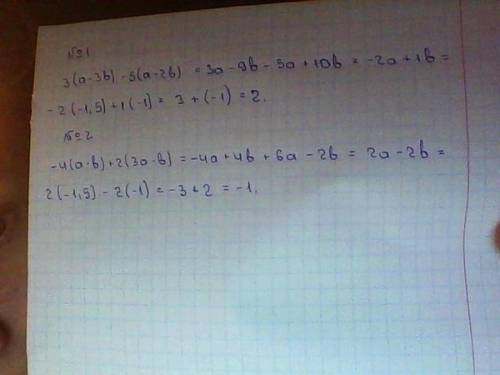 №1
3(a-3b)-5(a-2b) = 3a-9b-5a+10b = -2a+1b =
-2(-1,5)+1(-1) = 3+(-1) = 2.
№2
-4(a-b)+2(3a-b) = -4a+4b+6a-2b = 2a-2b =
2(-1,5)-2(-1) = -3+2 = -1.